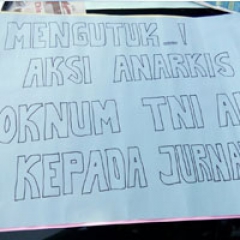 MENGUTUK...!
AKSI ANARKIS
OKNUM TNI A
KEPADA JURNA